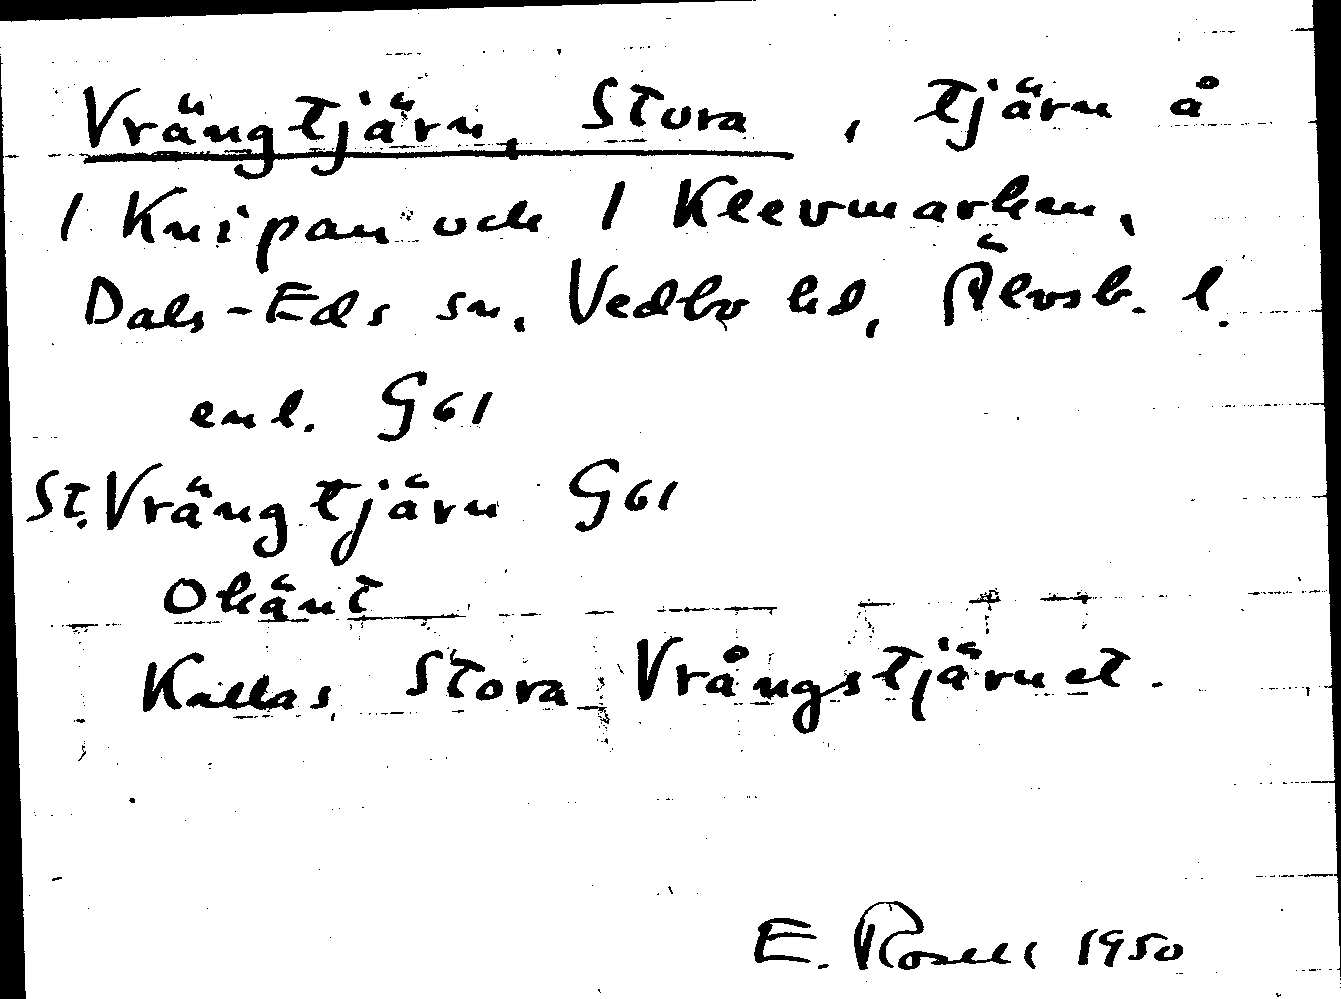 Vrängtjärn, Stora, tjärn å
1 Knipan och 1 Klevmarken,
Dals-Eds sn, Vedbo hd, Älvsb. l.
enl. G61
St. Vrängtjärn G61
Okänt
Kallas Stora Vrångstjärnet.
E. Rosell 1950